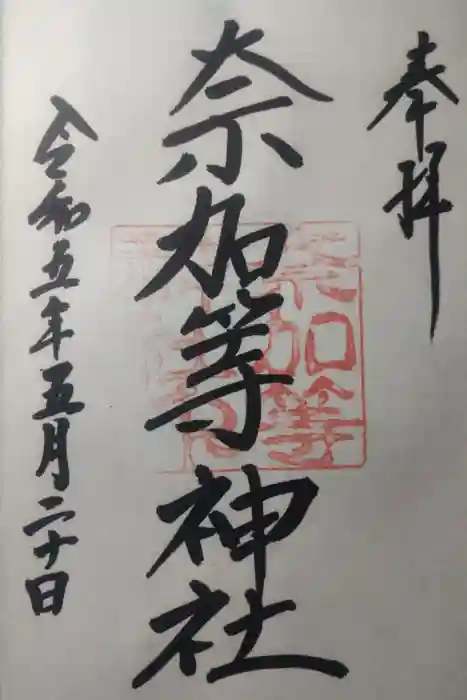 奉拝
奈加等神社
令和五年五月二十日
奈加等